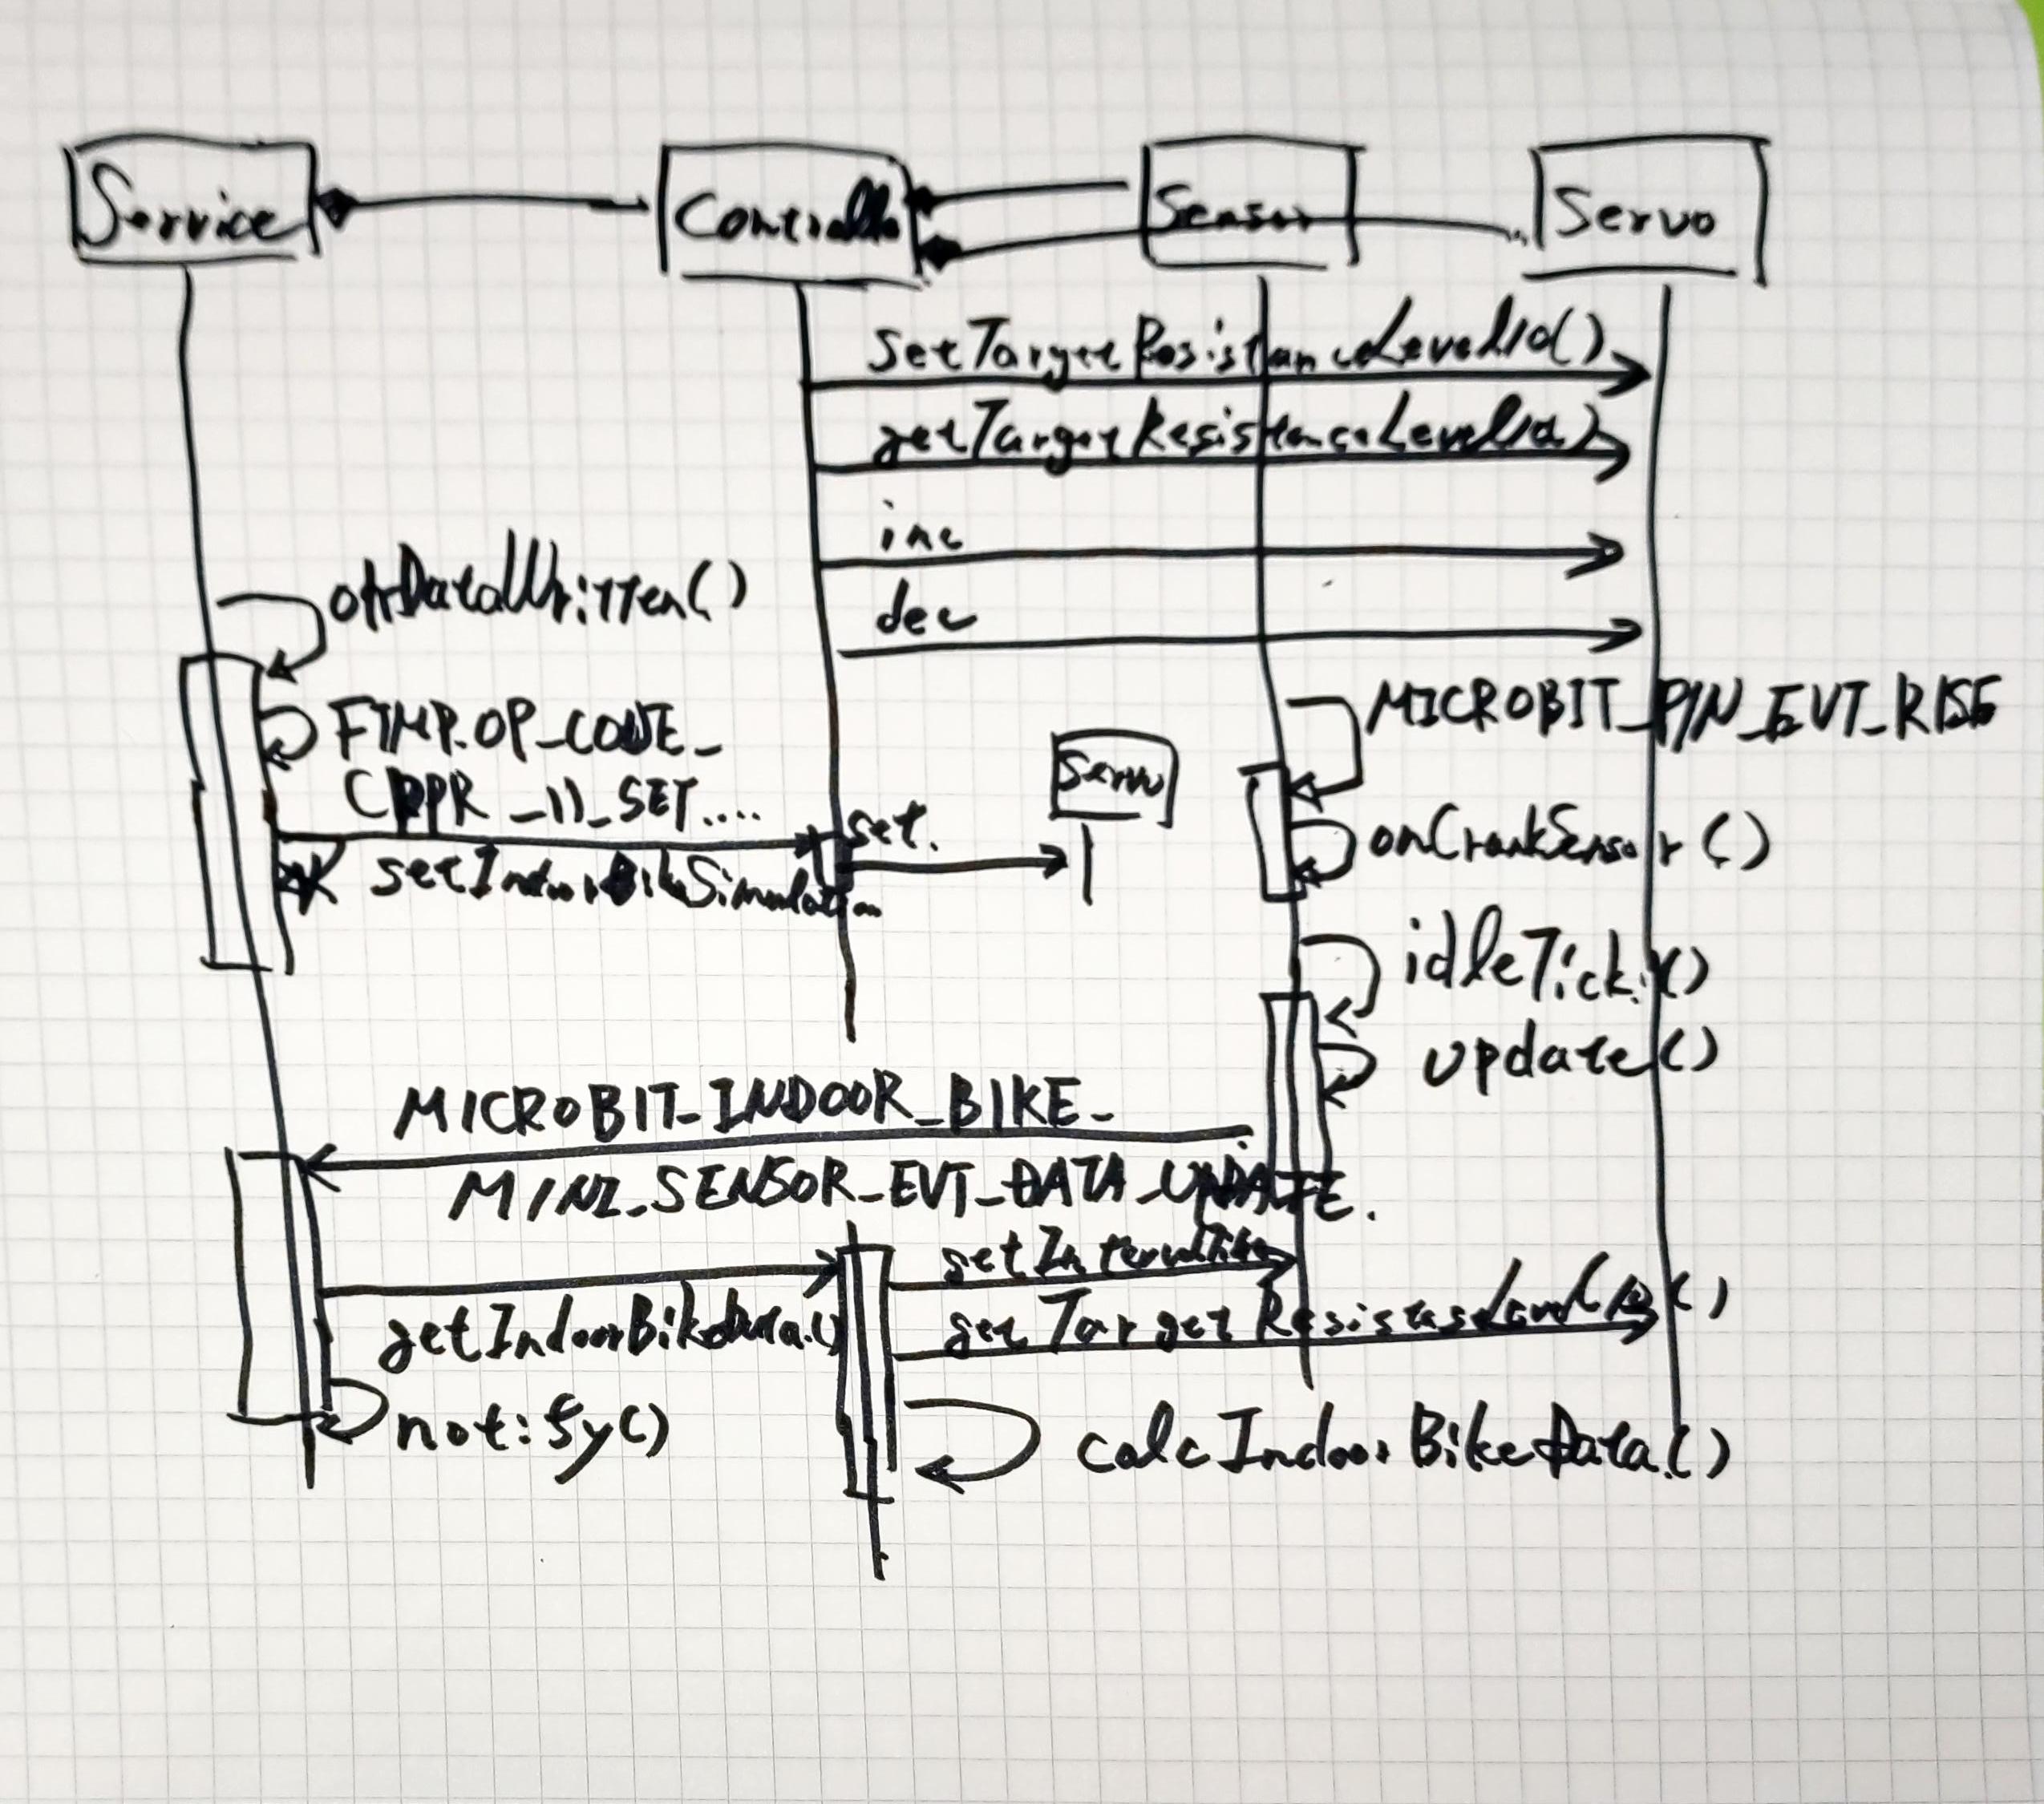 Service
Controlle
Sensor
Servo
setTargetResistanceLevel10()
getTargetResistanceLevel10()
inc
dec
onDataWritten()
FTMP_OP_CODE_
CPPR_11_SET....
setIndoorBikeSimulation
set.
Servo
MICROBIT_PIN_EVT_RISE
onCrankSensor()
idleTick()
update()
MICROBIT_INDOOR_BIKE_
MINI_SENSOR_EVT_DATA_UPDATE.
getIndoorBikeData()
notify()
calcIndoorBikeData()